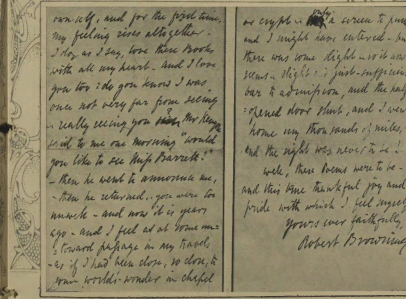 own self, and for the first time,
my feeling rises altogether.
I do, as I say, love these Books
with all my heart - and I love
you too: do you know I was
once not very far from seeing
- really seeing you? Mr Kenyon
said to me one morning "would
you like to see Miss Barrett?"
- then he went to announce me,
- then he returned .. you were too
unwell - and now it is years
ago - and I feel as at some un-
toward passage in my travels
- as if I had been close, so close, to
some world's-wonder in chapel
or crypt - only a screen to push
and I might have entered - but
there was some slight
seems slight & just-sufficient
bar to admission, and the half
opened door shut, and I went
home my thousands of miles,
and the sight was never to be!
Well, these Poems were to be -
and this true thankful joy and
pride with which I feel myself
Yours ever faithfully,
Robert Browning